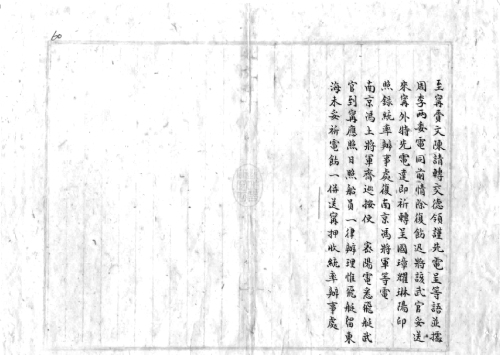 60
至寗賫文陳請轉交德領謹先電呈等語並據
周李兩委電同前情除復飭迅將該武官妥送
來寗外特先電達即祈轉呈國璋耀琳陽印
照錄統率辦事處復南京馮將軍等電
南京馮上將軍齊巡按使　密陽電悉飛艇武
官到寗應照日照船員一律辦理惟飛艇留東
海未妥祈電飭一併送寗押收統率辦事處